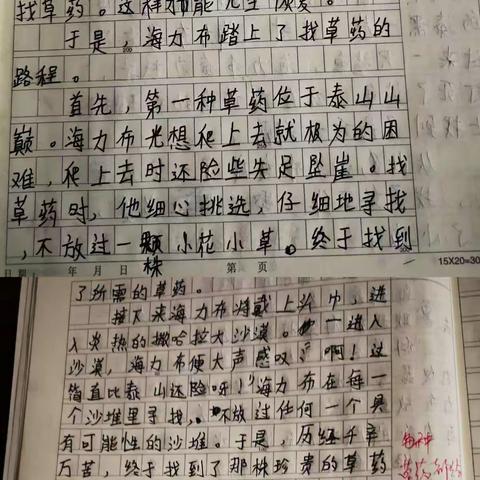 找草药。这样才能先生恢复。
于是，海力布踏上了找草药的
路程。
首先，第一种草药位于泰山山
巅。海力布光想爬上去就极为的困
难，爬上去时还险些失足坠崖。找
草药时，他细心挑选，仔细地寻找
，不放过一颗小花小草。终于找到
株
日期： 年 月 日 第 页 15X20=30
了所需的草药。
接下来海力布将戴上头巾，进
入炎热的撒哈拉大沙漠。一进入
沙漠，海力布便大声感叹：啊！这
简直比泰山还险呀！”海力布在每一
个沙堆里寻找，不放过任何一个具
有可能性的沙堆。于是，历经千辛
万苦，终于找到了那株珍贵的草药
草药